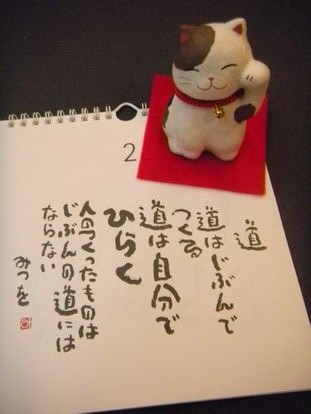 2
道
道はじぶんで
つくる
道は自分で
ひらく
人のつくったものは
じぶんの道には
ならない
みつを